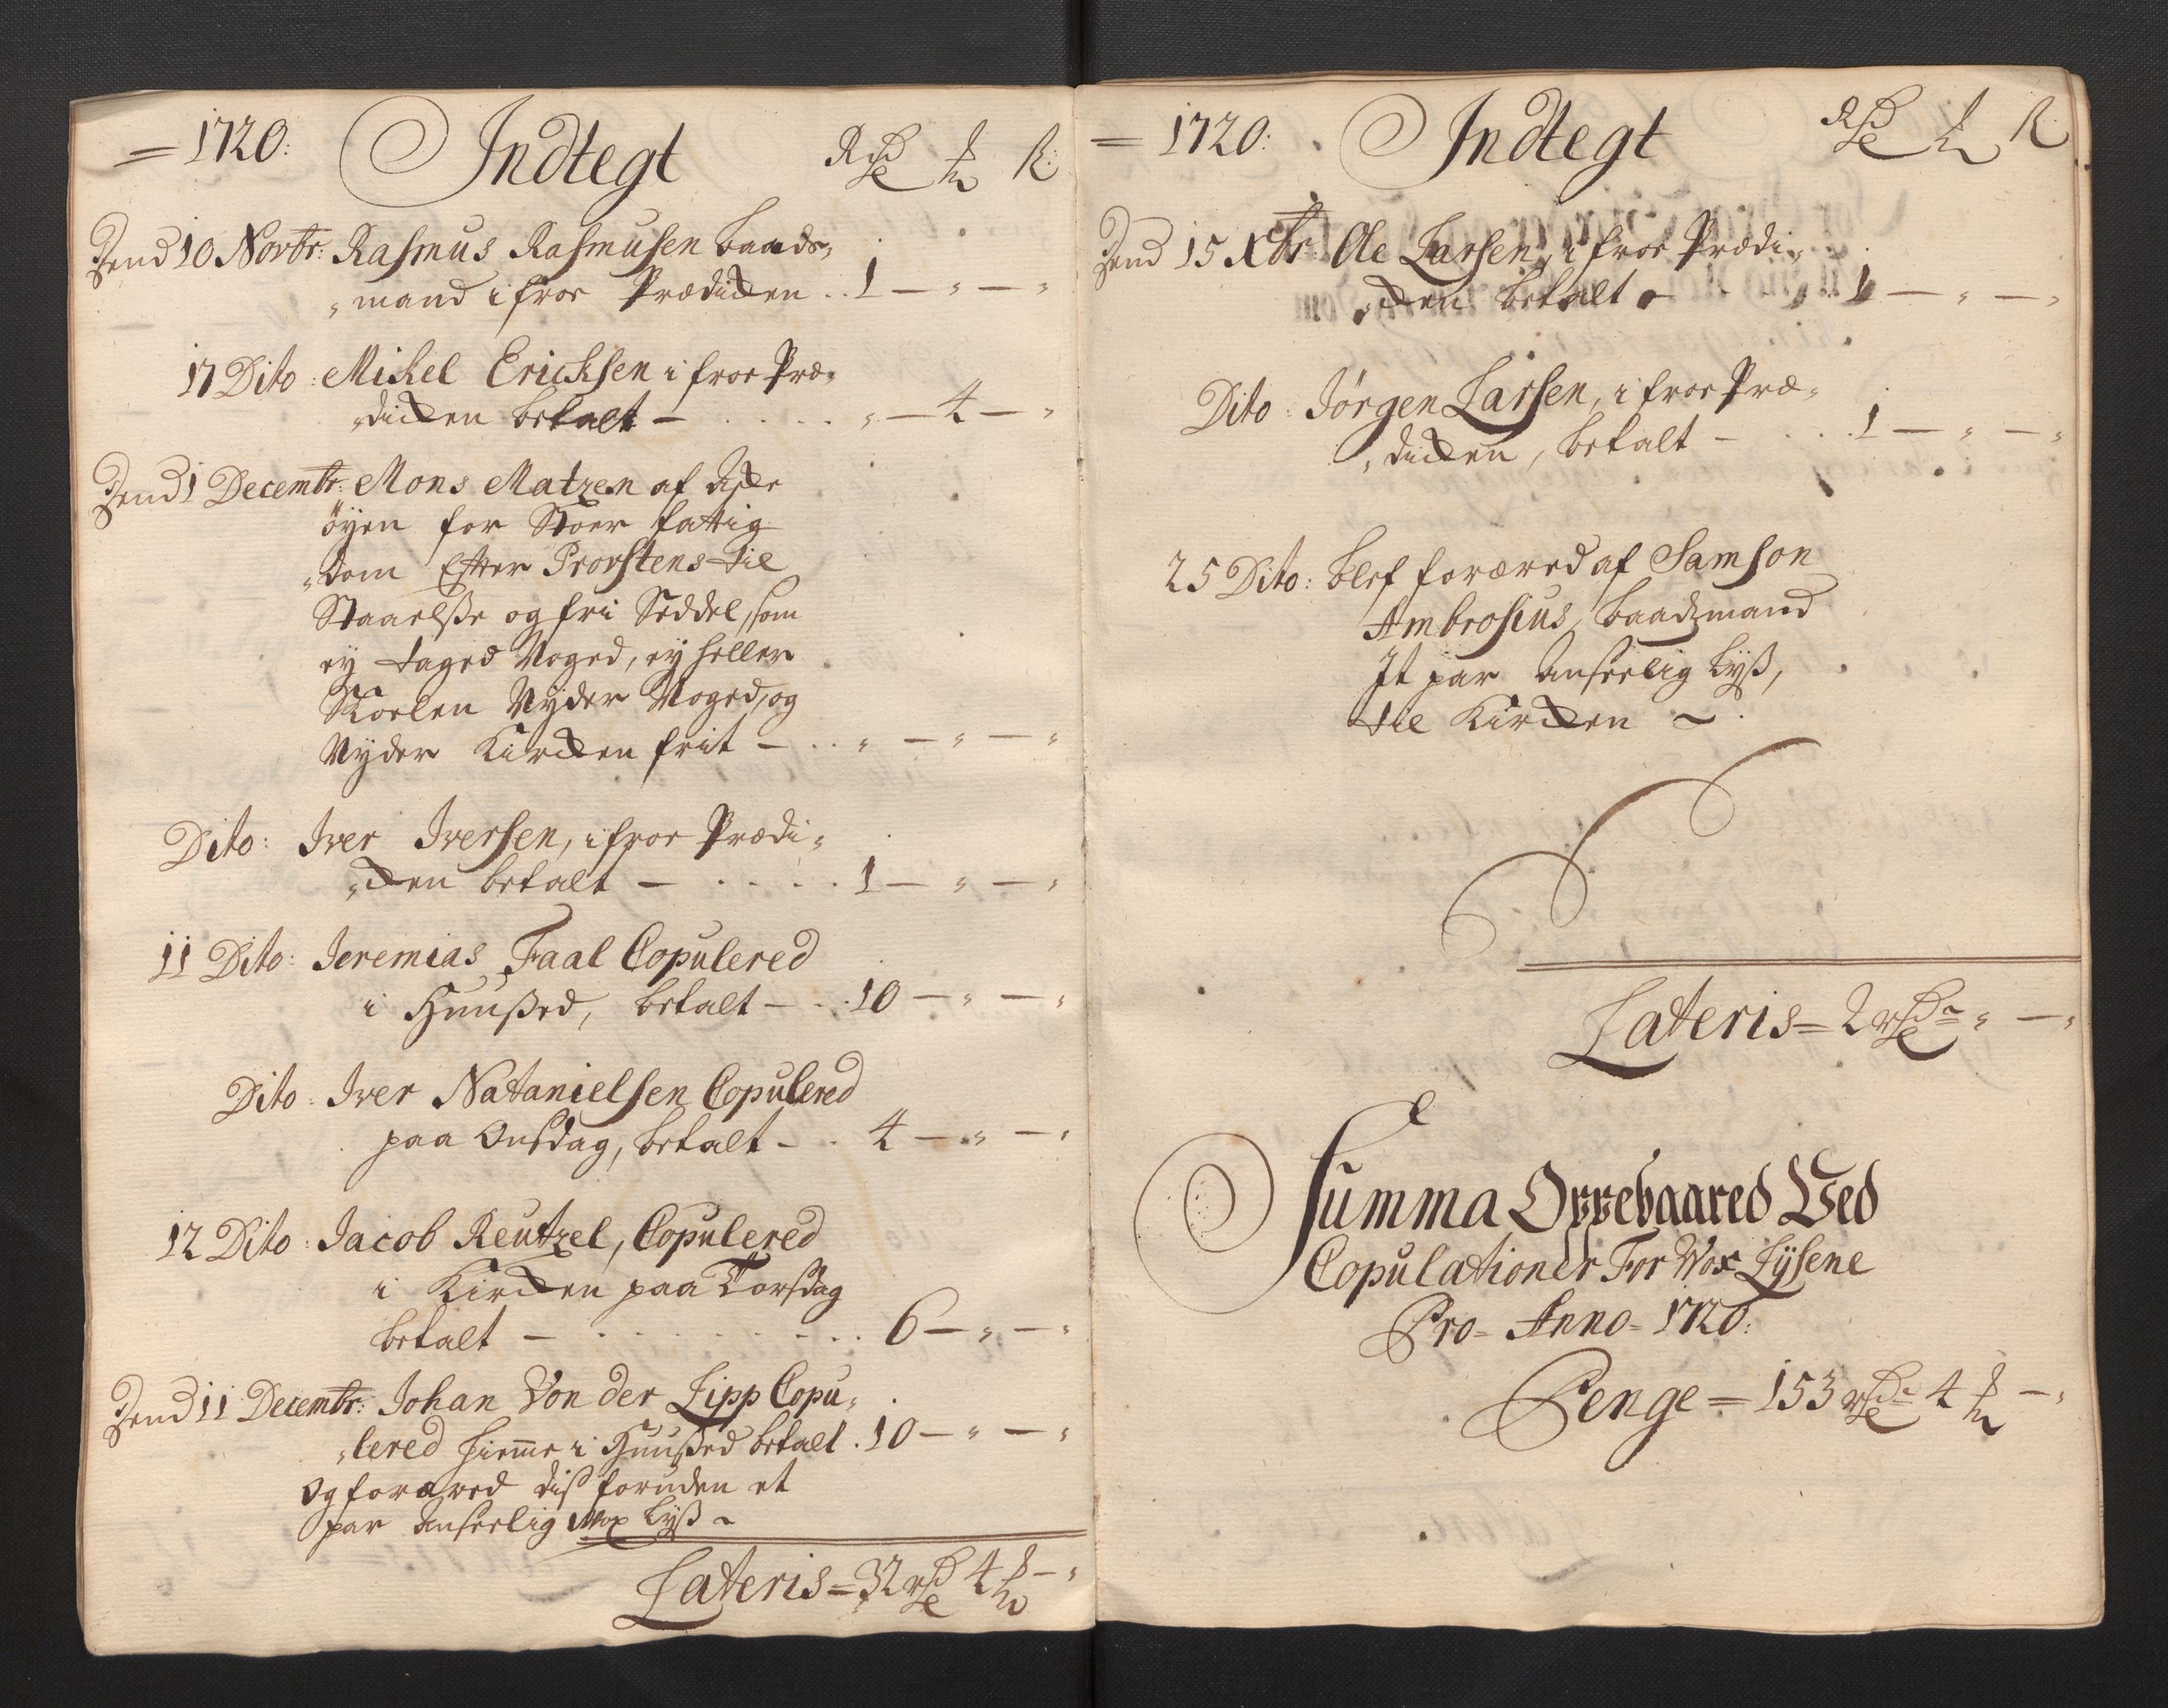 1720. Indtegt Rdr ₰ ß
Dend 10 Novbr: Rasmus Rasmusen baads-
mand i fror Prædichen .. 1 — " — "
17 Dito: Michel Erichsen i fror Præ-
dichen betalt — . . . . " — 4 — "
Dend 1 Decembr: Mons Matzen af
öyen for Stoer fattig-
dom Efter Provstens til
Staaelsse og fri Seddel, som
ey taged Noged, ey heller
Skolen Nyder Noged, og
Nyder Kirchen frit — . . " — " — "
Dito: Iver Iversen, i fror Prædi-
chen betalt — . . . . 1 — " — "
11 Dito: Jeremias Faal Copulered
i Huußed, betalt — . . 10 — " — "
Dito: Iver Natanielsen Copulered
paa Onsdag, betalt — . 4 — " — "
12 Dito: Jacob Reutzel, Copulered
i Kirchen paa Torsdag
betalt — . . . . . . . . 6 — " — "
Dend 11 Decembr: Johan Von der Lipp Copu-
lered hiemme i Huußed betalt . 10 — " — "
Og foræred dis foruden et
par Anseelig Wox Lyß ~
Lateris = 32 rdr 4 ₰ — "
1720: Indtegt Rdr ₰ ß
Dend 15 Xbr: Ole Larsen, i fror Prædi-
chen betalt . . . 1 — " — "
Dito: Jörgen Larsen, i fror Præ-
dichen, betalt — . . . 1 — " — "
25 Dito: blef foræred af Samson
Ambrosius, baadzmand
It par Anseelig Lyß,
til Kirchen ~ .
Lateris = 2 rdr " — "
Summa Oppebaared Ved
Copulationer For Wox Lÿsene
Pro = Anno = 1720:
Penge = 153 rdr 4 ₰ — "